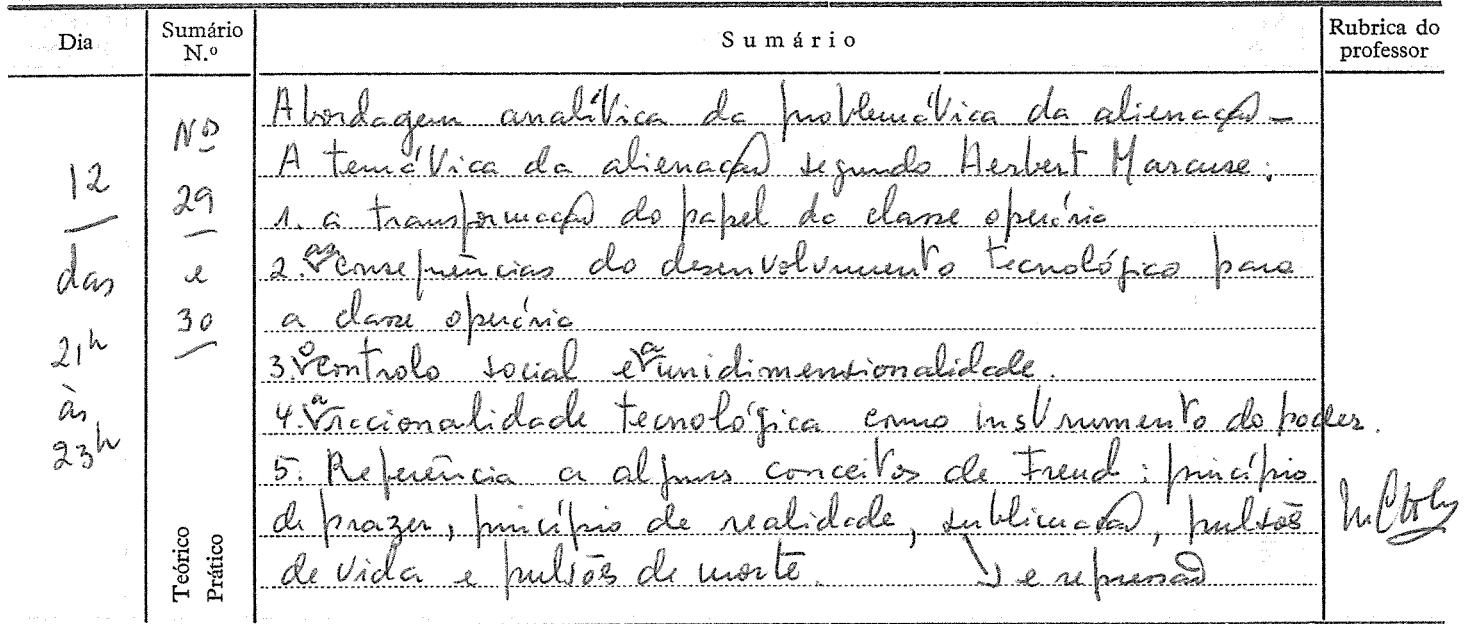 Dia
Sumário N.º
Sumário
Rubrica do professor
12
das
21h
às
23h
Nº
29
e
30
Teórico
Prático
Abordagem analítica da problemática da alienação –
A temática da alienação segundo Herbert Marcuse:
1. a transformação do papel da classe operária
2. as consequências do desenvolvimento tecnológico para
a classe operária
3. o controlo social e a unidimensionalidade.
4. a racionalidade tecnológica como instrumento do poder.
5. Referência a alguns conceitos de Freud: princípio
de prazer, princípio de realidade, sublimação, pulsões
de vida e pulsões de morte. e repressão